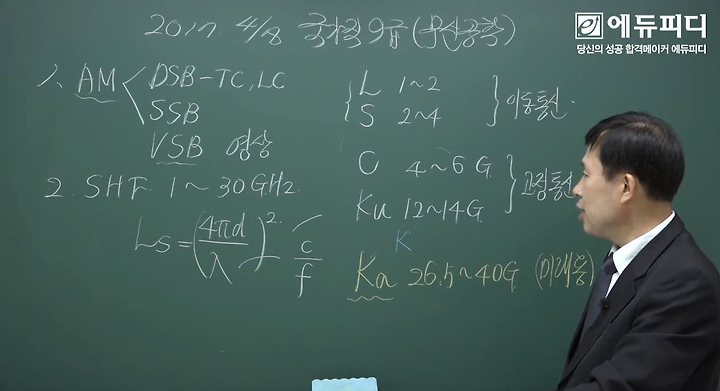 에듀피디
당신의 성공 합격메이커 에듀피디
2017. 4/8 국가직 9급 (무선공학)
1. AM < DSB-TC, LC
SSB
VSB 영상
2. SHF. 1~30GHz.
Ls = (4πd/λ)². c/f
{ L 1~2
S 2~4 } 이동통신.
C 4~6 G.
Ku 12~14G. } 고정통신
K
Ka 26.5~40G. (미래용)